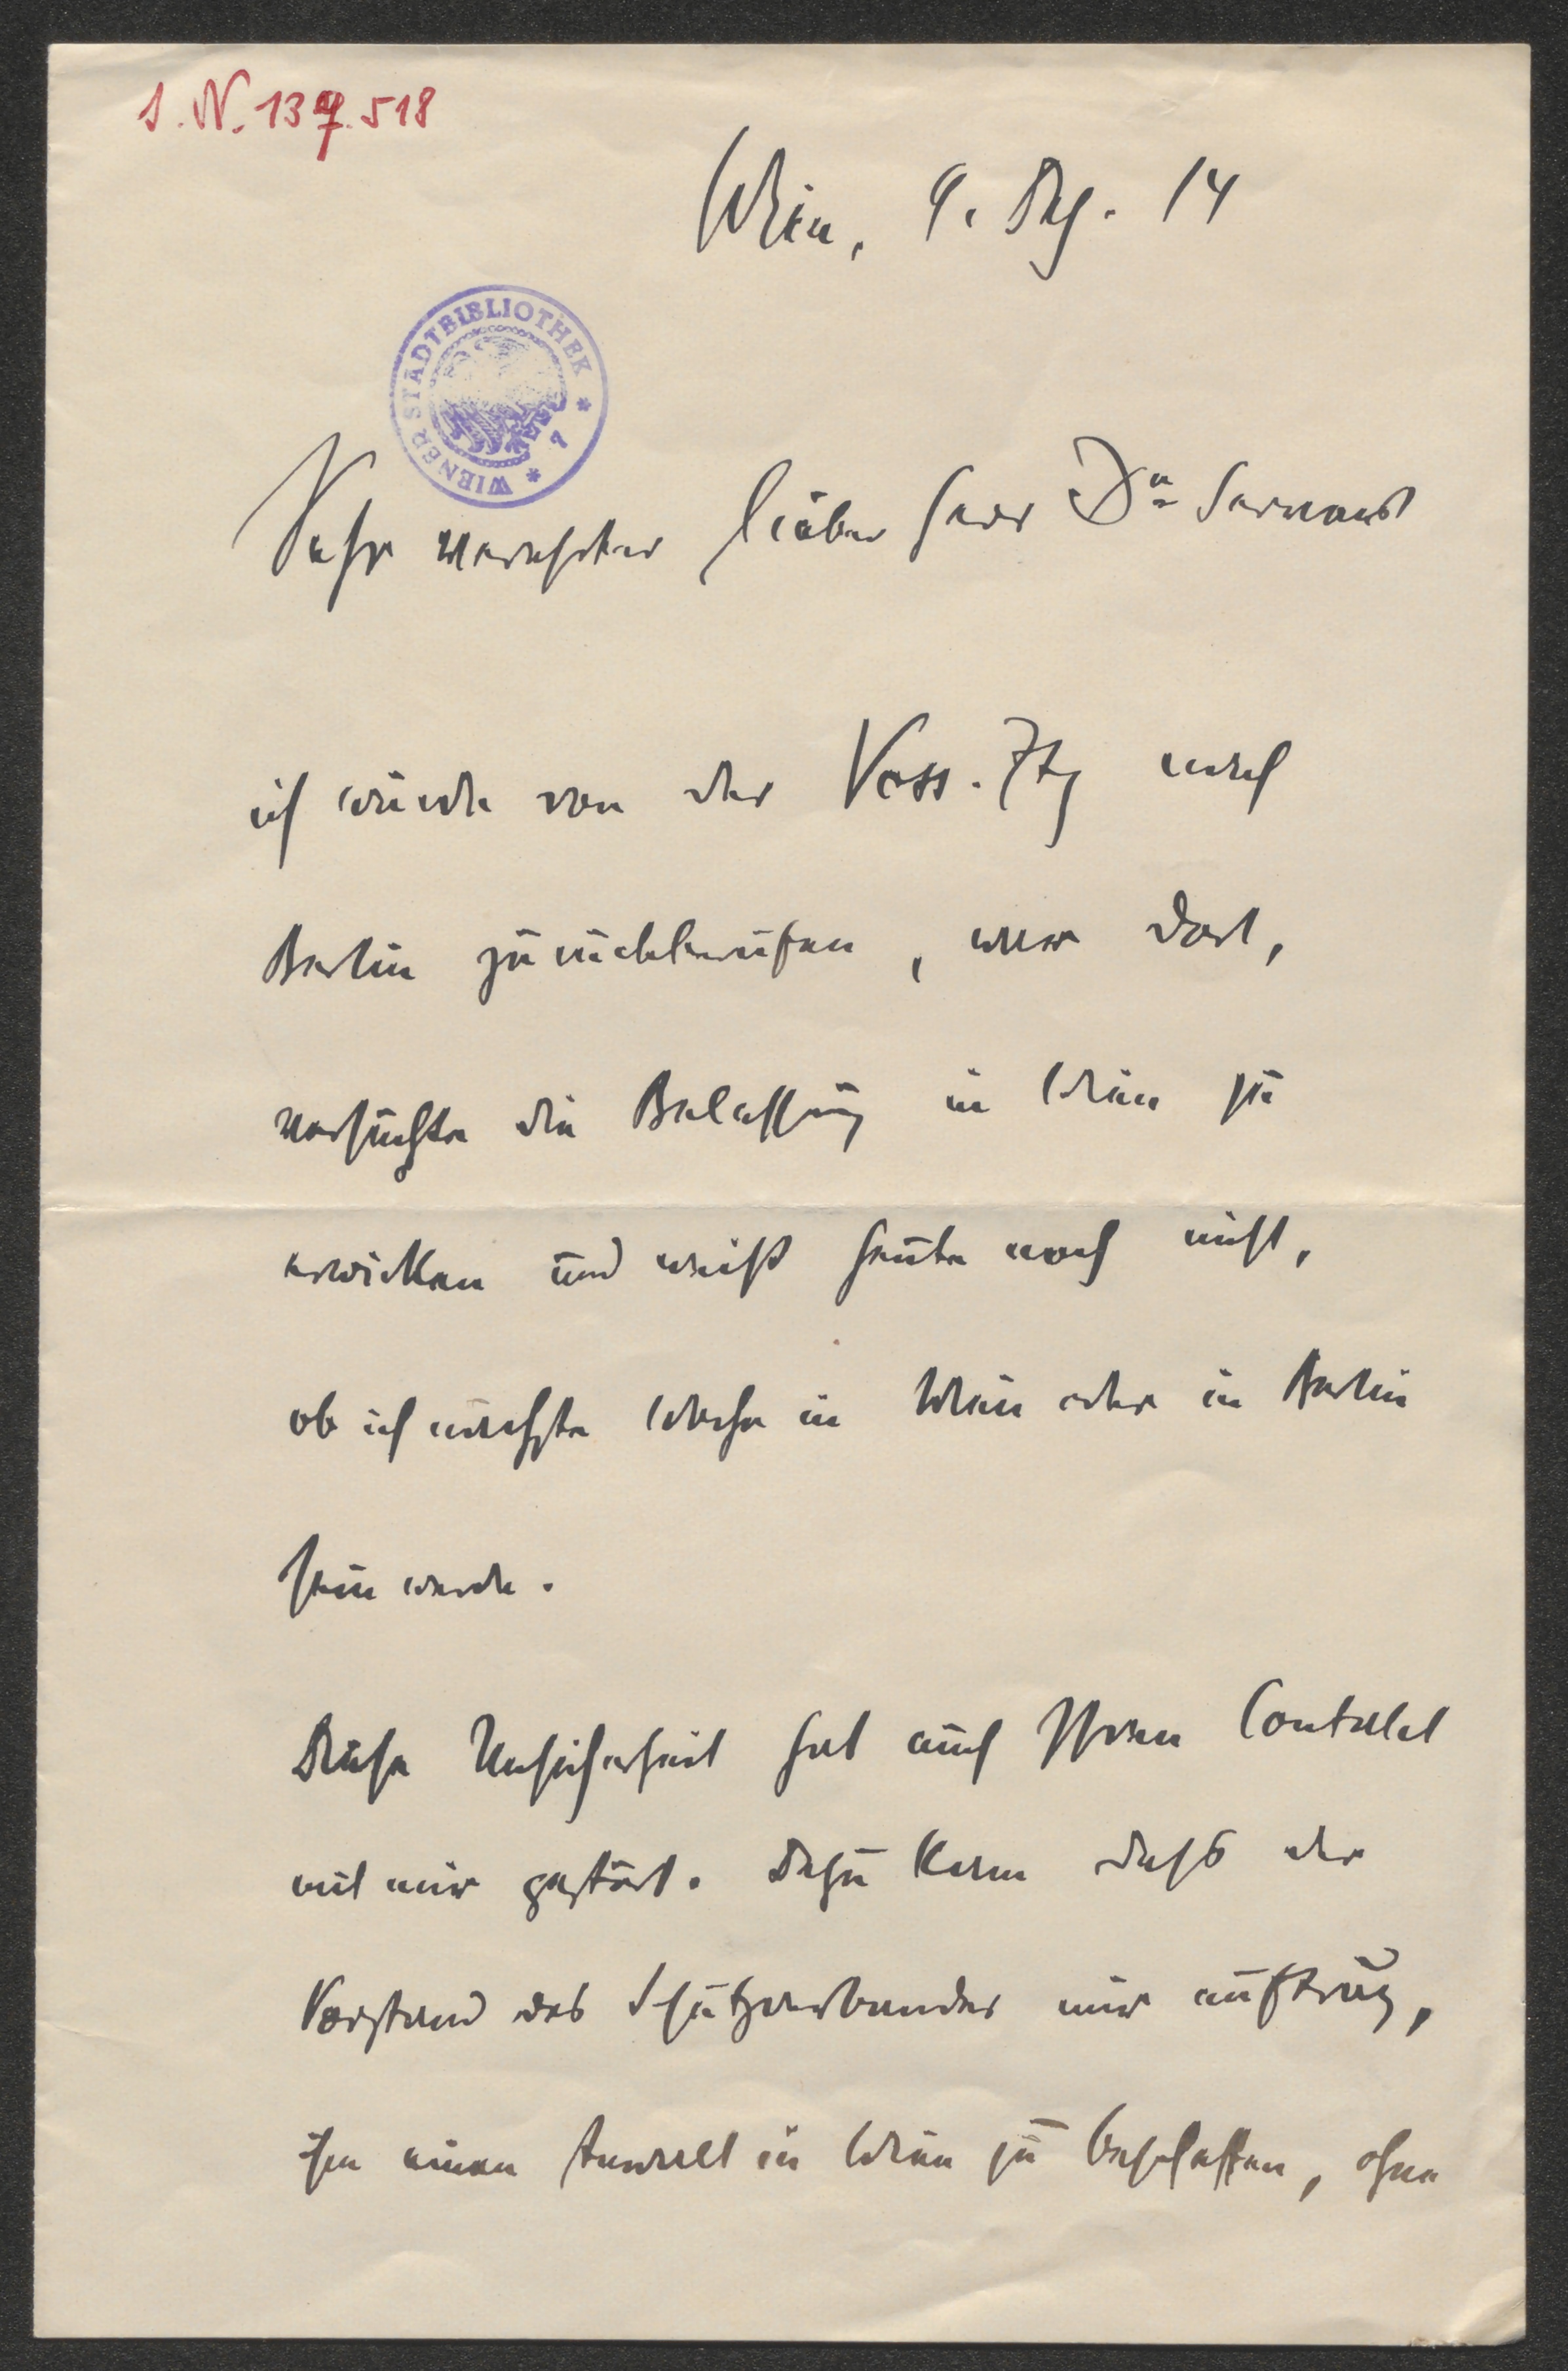 I. N. 137.518
Wien, 9. Dez. 14
WIENER STÄDTBIBLIOTHEK * 7 *
Sehr verehrter lieber Herr Dr
ich wurde von der Voss. Ztg nach
Berlin zurückberufen, war dort,
versuchte die Belassung in Wien zu
erwirken und weiß heute noch nicht,
ob ich nächste Woche in Wien oder in Berlin
sein werde.
Diese Unsicherheit hat auch Ihren Contakt
mit mir gestört. Dazu kam dass der
Vorstand des Schutzverbandes mir auftrug,
ihm einen Anwalt in Wien zu beschaffen, ohne